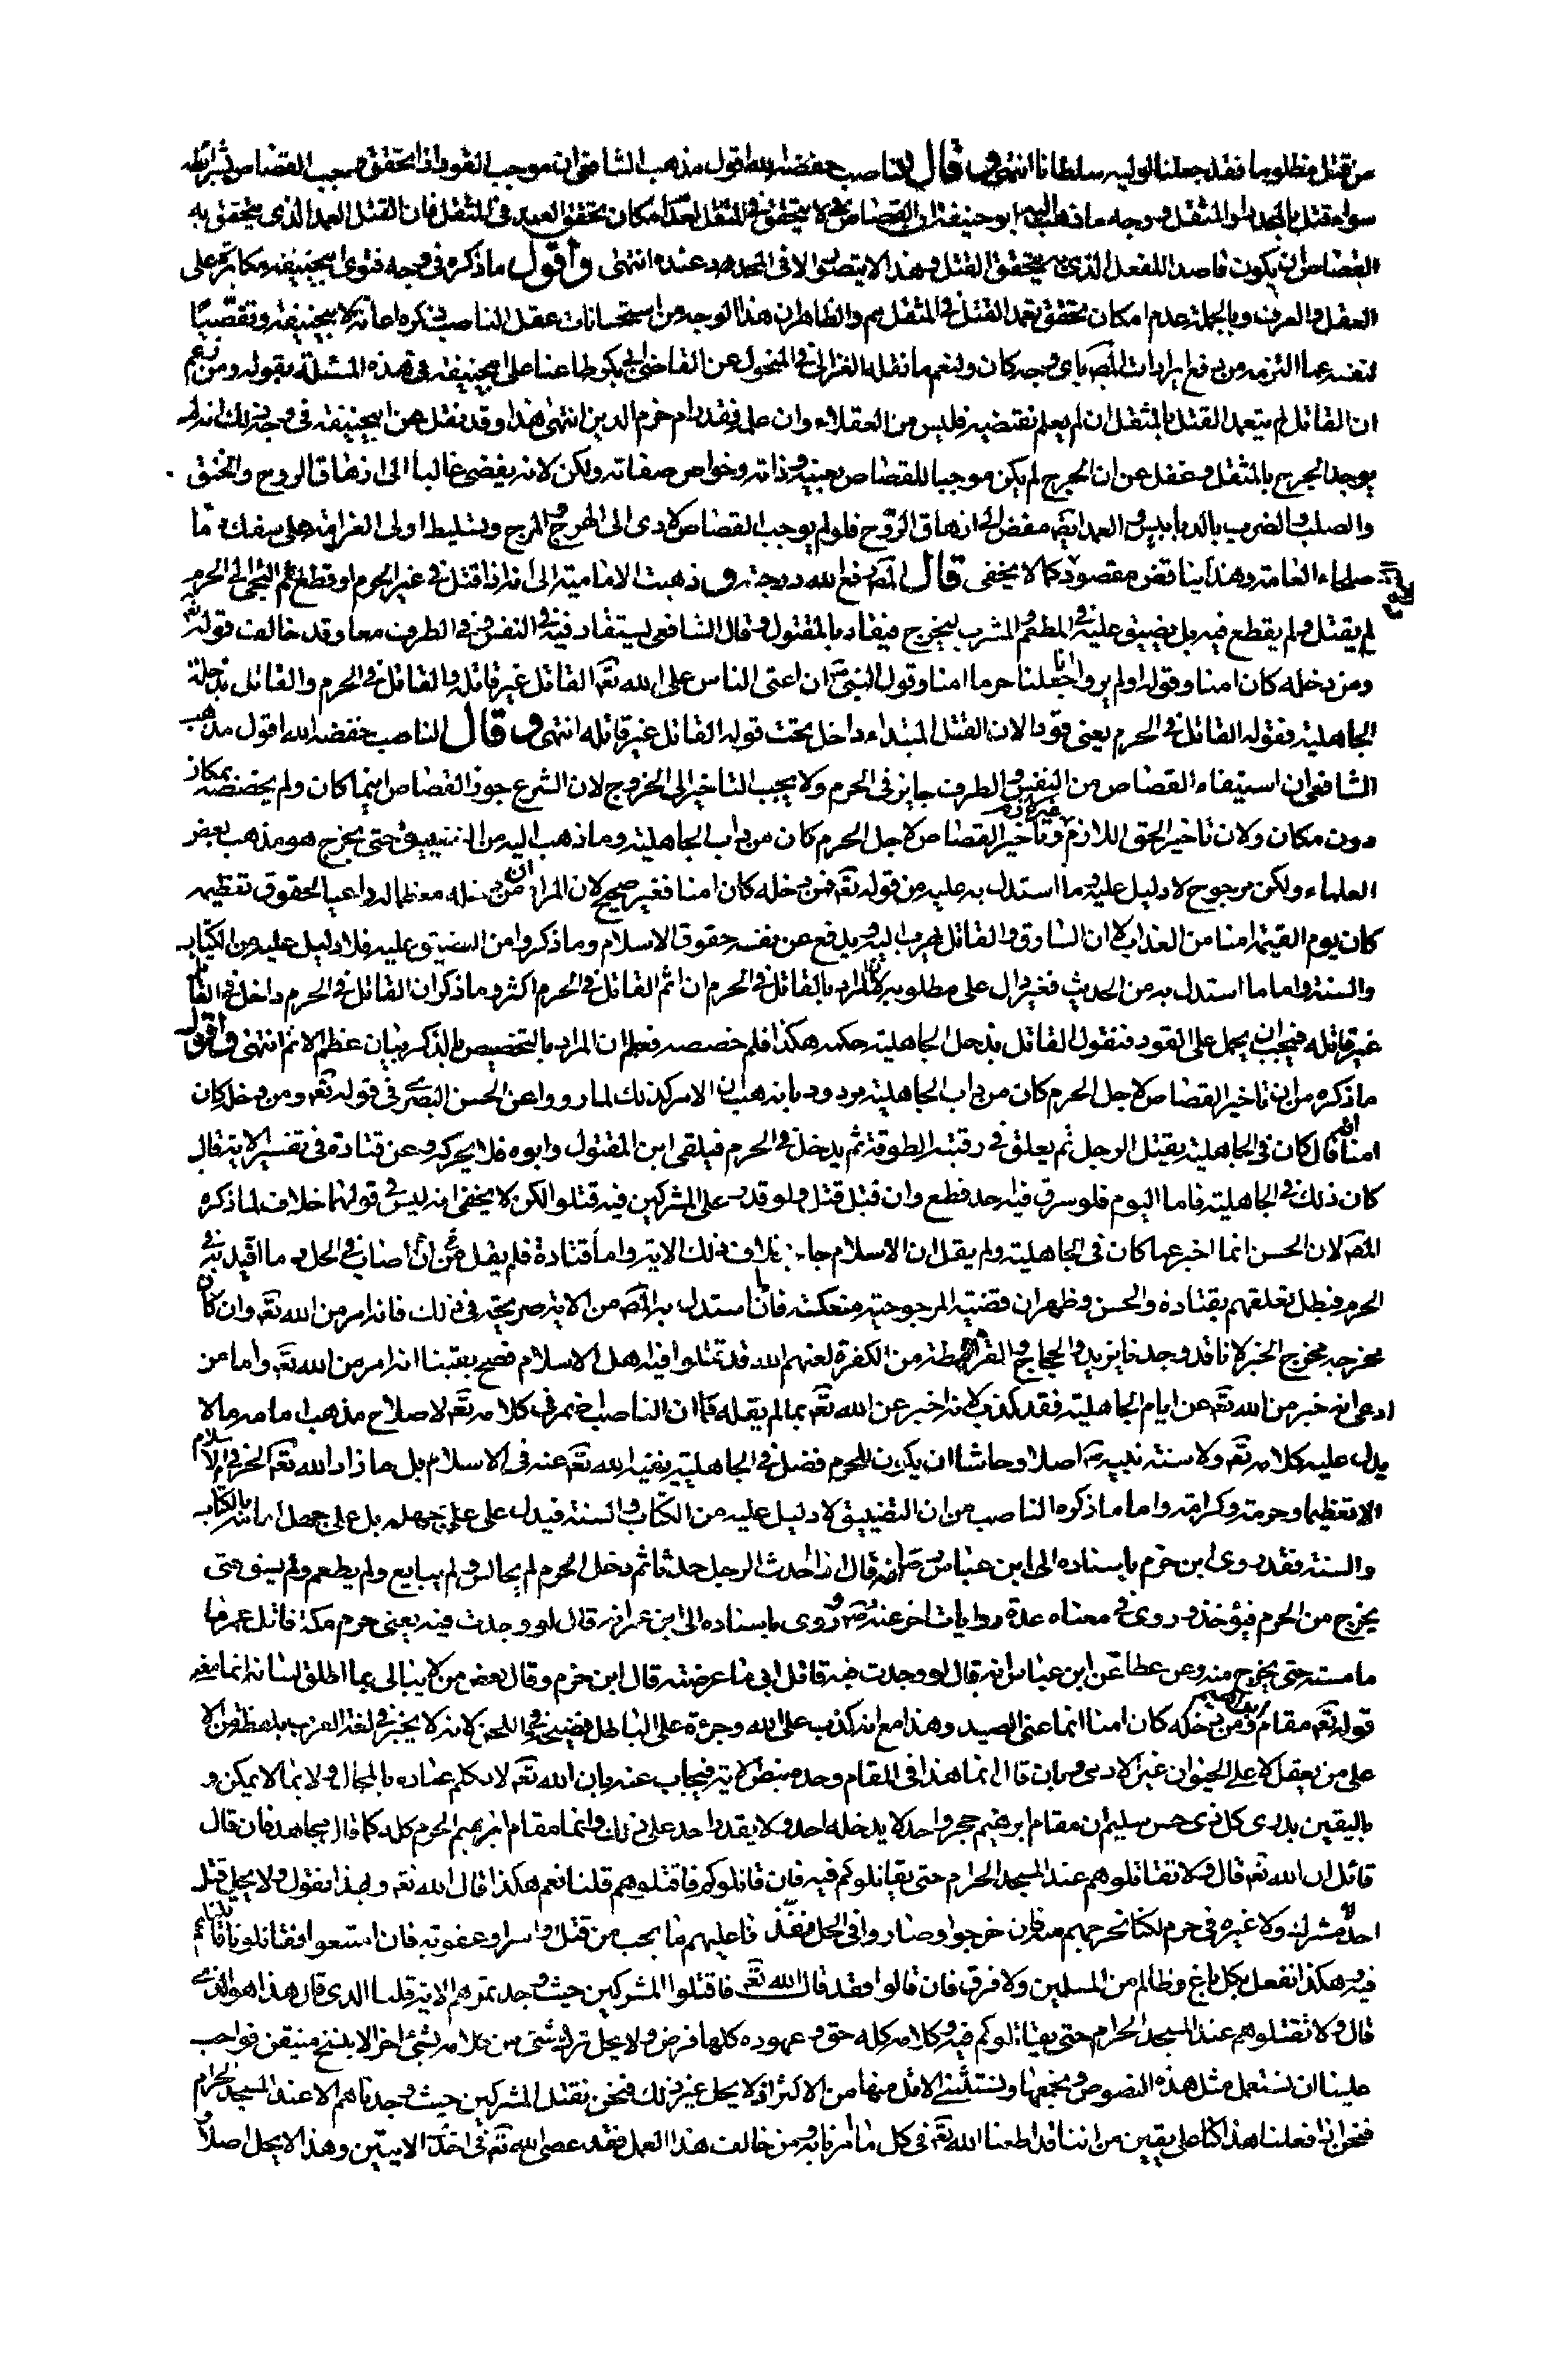 من قتل مظلوما فقد جعلنا لوليه سلطانا انتهى وقال الناصب خفضه الله اقول مذهب الشافعى ان موجب القود اذا تحقق يجب القصاص بشرائطه
سواء قتل بالمحدد او المثقل ووجه ما ذهب اليه ابو حنيفة ان القصاص لا يتحقق فى المثقل لعدم امكان تحقق العمد فى المثقل فان القتل العمد الذى يتحقق به
القصاص ان يكون قاصدا للفعل الذى به يتحقق القتل وهذا لا يتصور الا فى المحدد عنده انتهى واقول ما ذكره فى وجه فتوى ابيحنيفه مكابرة على
العقل والعرف وبالجملة عدم امكان تحقق تعمد القتل فى المثقل والظاهر ان هذا الوجه من استحسانات عقل الناصب ذكره اعانة لابيحنيفه وتفصيا
لنفسه عما التزمه من دفع ايرادات المص باى وجه كان ولنعم ما نقله الغزالى فى المنخول عن القاضى ابى بكر طاعنا على ابيحنيفه فى هذه المسئلة بقوله ومن زعم
ان القاتل لم يتعمد القتل بالمثقل ان لم يعلم نقيضه فليس من العقلاء وان علم فقد رام خرم الدين انتهى هذا وقد نقل عن ابيحنيفه فى وجه ذلك انه لم
يوجد الجرح بالمثقل وغفل عن ان الجرح لم يكن موجبا للقصاص بعينه وذاته وخواص صفاته ولكن لانه يفضى غالبا الى ازهاق الروح والخنق
والصلب والضرب بالدبابيس العمد ايضا مفض الى ازهاق الروح فلو لم يوجب القصاص لادى الى الهرج والمرج وتسليط اولى الغرامة على سفك دما
صلحاء العامة وهذا يناقض مقصوده كما لا يخفى قال المص رفع الله درجته و ذهبت الامامية الى انه اذا قتل فى غير الحرم او قطع ثم التجى الى الحرم
لم يقتل ولم يقطع فيه بل يضيق عليه فى المطعم والمشرب ليخرج فيقاد بالمقتول وقال الشافعى يستقاد فيه فى النفس وفى الطرف معا وقد خالف قوله تعه
ومن دخله كان امنا وقوله اولم يروا انا جعلنا حرما امنا وقول النبى ص ان اعتى الناس على الله تعه القاتل غير قاتله والقاتل فى الحرم والقاتل بذحل
الجاهلية فقوله القاتل فى الحرم يعنى قودا لان القتل المبتداء داخل تحت قوله القاتل غير قاتله انتهى وقال الناصب خفضه الله اقول مذهب
الشافعى ان استيفاء القصاص من النفس والطرف جايز فى الحرم ولا يجب التاخير الى الخروج لان الشرع جوز القصاص اينما كان ولم يخصصه بمكان
دون مكان ولان تاخير الحق اللازم غير لازم وتاخير القصاص لاجل الحرم كان من داب الجاهلية وما ذهب اليه من التضييق حتى يخرج هو مذهب بعض
العلماء ولكن مرجوح لا دليل عليه وما استدل به عليه من قوله تعه فمن دخله كان امنا فغير صحيح لان المراد ان من دخله معظما له داعيا لحقوق تعظيمه
كان يوم القيمة امنا من العذاب لا ان السارق والقاتل يهرب اليه ويدفع عن نفسه حقوق الاسلام وما ذكروا من التضيق عليه فلا دليل عليه من الكتاب
والسنة واما ما استدل به من الحديث فغير دال على مطلوبه لان المراد بالقاتل فى الحرم ان اثم القاتل فى الحرم اكثر وما ذكر ان القاتل فى الحرم داخل فى القاتل
غير قاتله فيجب ان يحمل على القود فنقول القاتل بذحل الجاهلية حكمه هكذا فلم خصصه فعلم ان المراد بالتخصيص بالذكر بيان عظم الاثم انتهى واقول
ما ذكره من ان تاخير القصاص لاجل الحرم كان من داب الجاهلية مردود بانه هب ان الامر كذلك لما رووا عن الحسن البصرى فى قوله تعه ومن دخله كان
امنا انه قال كان فى الجاهلية يقتل الرجل ثم يعلق فى رقبته الطوقة ثم يدخل فى الحرم فيلقى ابن المقتول وابوه فلا يحركه وعن قتادة فى تفسير الاية قال
كان ذلك فى الجاهلية فاما اليوم فلو سرق فيه احد قطع وان قتل قتل ولو قدر على المشركين فيه قتلوا لكن لا يخفى انه ليس فى قولهما خلاف لما ذكره
المص لان الحسن انما اخبر عما كان فى الجاهلية ولم يقل ان الاسلام جاء بخلاف ذلك الاية واما قتادة فلم يقل ان من اصاب فى الحل ما اقيد به فى
الحرم فبطل تعلقهم بقتادة والحسن وظهر ان قضية المرجوحية منعكسة فان ما استدل به المص من الاية صريحة فى ذلك فانه امر من الله تعه وان كان
مخرجه مخرج الخبر لانا قد وجدنا يزيد والحجاج والقرامطة من الكفرة لعنهم الله قد قتلوا فيه اهل الاسلام فصح يقينا انه امر من الله تعه واما من
ادعى انه خبر من الله تعه عن ايام الجاهلية فقد كذب لانه اخبر عن الله تعه بما لم يقله فما ان الناصب اضمر فى كلامه تعه لاصلاح مذهب امامه ما لا
يدل عليه كلامه تعه ولا سنة نبيه ص اصلا وحاشا ان يكون للحرم فضل فى الجاهلية يغيه الله تعه عنه فى الاسلام بل ما زاد الله تعه الحرم فى الاسلام
الا تعظيما وحرمة وكرامة واما ما ذكره الناصب من ان التضييق لا دليل عليه من الكتاب والسنة فيدل على جهله بل على جهل امامه بالكتاب
والسنة فقد روى ابن حزم باسناده الى ابن عباس رض انه قال اذا احدث الرجل حدثا ثم دخل الحرم لم يجالس ولم يبايع ولم يطعم ولم يسق حتى
يخرج من الحرم فيؤخذ وروى فى معناه عدة روايات اخر عنه رض وروى باسناده الى ابن عمر انه قال لو وجدت فيه يعنى حرم مكة قاتل عمر ما
ما مسته حتى يخرج منه وعن عطا عن ابن عباس انه قال لو وجدت فيه قاتل ابى ما عرضته قال ابن حزم وقال بعض من لا يبالى بما اطلق لسانه انما معنى
قوله تعه مقام ابراهيم ومن دخله كان امنا انما عنى الصيد وهذا مع انه كذب على الله وجرءة على الباطل قبيح فى اللحن لانه لا يخبر فى لغة العرب بلفظة من الا
على من يعقل لا على الحيوان غير الادمى قال انما هذا فى المقام وحده بنص الاية فيجاب عنه بان الله تعه لا يكلم عباده بالمحال ولا بما لا يمكن و
باليقين يدرى كل ذى حس سليم ان مقام ابرهيم حجر واحد لا يدخله احد ولا يقدر احد على ذلك وانما مقام ابرهيم الحرم كله كما قال مجاهد فان قال
قائل ان الله تعه قال ولا تقاتلوهم عند المسجد الحرام حتى يقاتلوكم فيه فان قاتلوكم فاقتلوهم قلنا نعم هكذا قال الله تعه وبهذا نقول ولا يحل قتل
احد لا مشرك ولا غيره فى حرم لكنا نخرجهم منه فان خرجوا وصاروا فى الحل نفذنا عليهم ما يجب من قتل واسر وعقوبة فان امتنعوا وقاتلونا قاتلناهم
فيه وهكذا نفعل بكل باغ وظالم من المسلمين ولا فرق فان قالوا فقد قال الله تعه فاقتلوا المشركين حيث وجدتموهم الاية قلنا الذى قال هذا هو الذى
قال ولا تقتلوهم عند المسجد الحرام حتى يقاتلوكم فيه وكلامه كله حق وعهوده كلها فرض ولا يحل ترك شئ من كلامه لشئ اخر الا بنسخ متيقن فواجب
علينا ان نستعمل مثل هذه النصوص ونجمعها ونستثنى الاقل منها من الاكثر اذ لا يحل غير ذلك فنحن نقتل المشركين حيث وجدناهم الا عند المسجد الحرام
فنحن اذا فعلنا هذا كنا على يقين من اننا قد اطعنا الله تعه فى كل ما امرنا به ومن خالف هذا العمل فقد عصى الله تعه فى احدى الايتين وهذا لا يحل اصلا